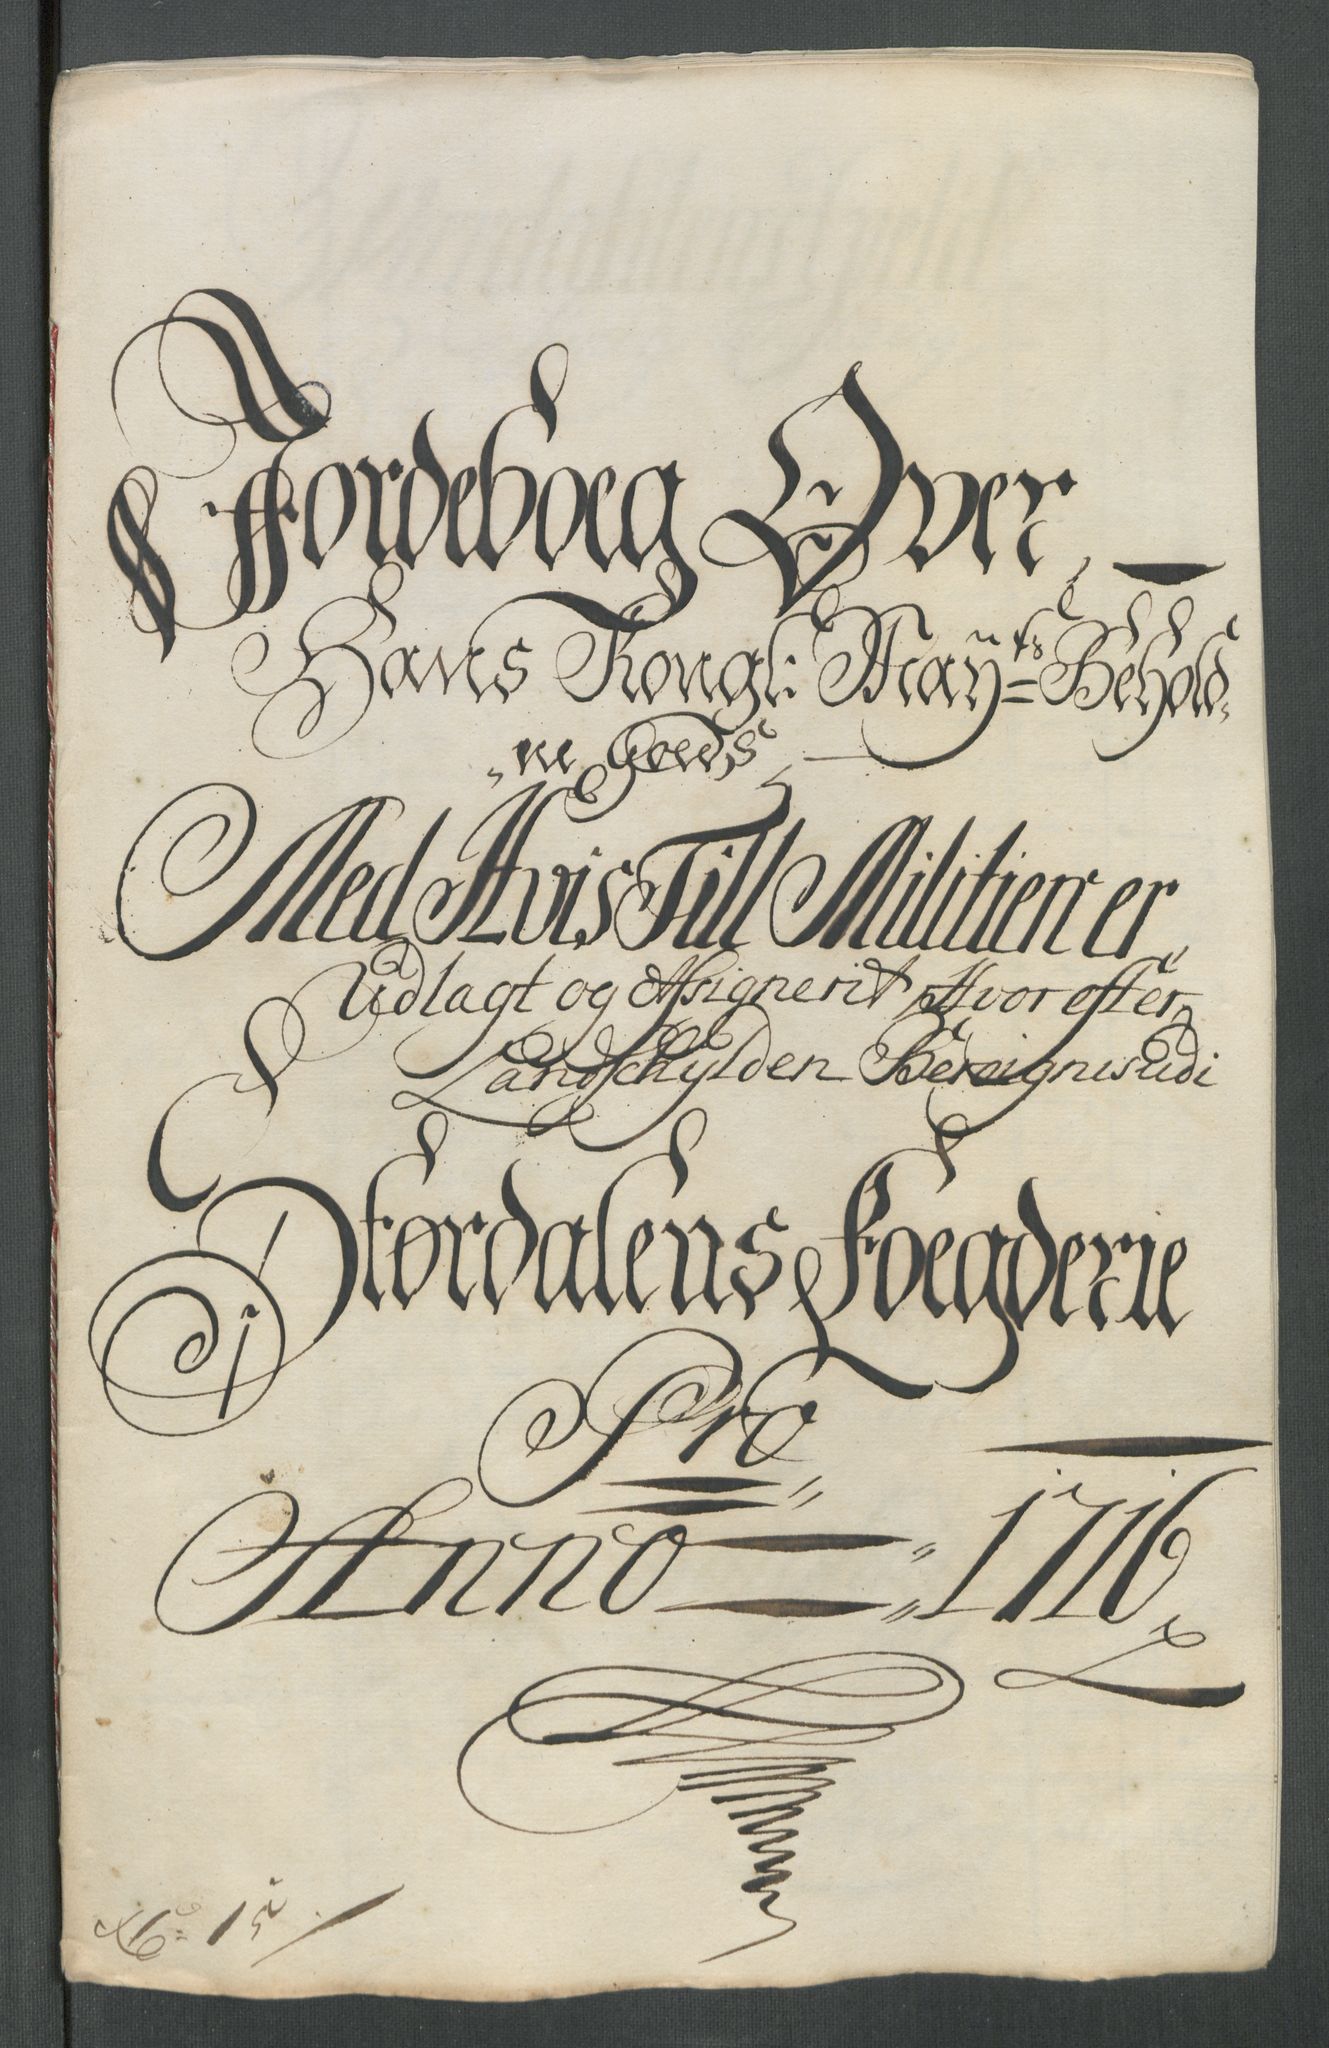 Jordeboeg Over
Hans Kongl: Maÿts Behold„
„ne Goeds
Med Hvis Till Militien er
Udlagt og Assignerit, Hvorefter
Landschÿlden Bereignis udi
Størdalens Foegderie
Pro
Anno 1716
No: 15